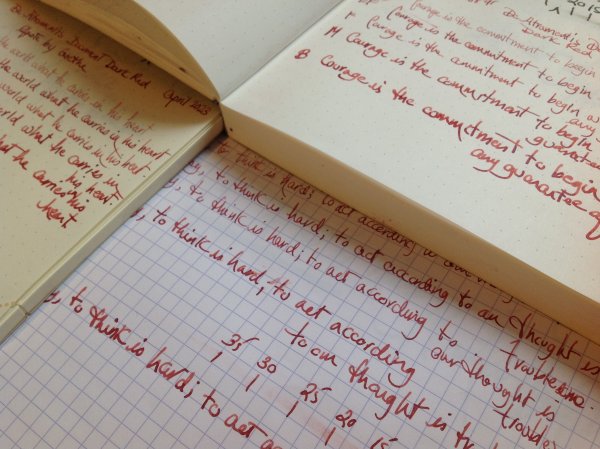 De Atramentis Document Dark Red April 2015
Quote by Goethe
the world what he carries in his heart
the world what he carries in his heart
world what he carries in his heart
world what he carries in
his heart
what he carries in his
heart
De Atramentis
Dark Red
2015
Courage is the commitment to begin
F Courage is the commitment to begin
Courage is the commitment to begin w
any
M Courage is the commitment to begin
guarantee
B Courage is the commitment to begin
any guarantee of
to think is hard; to act according to our
to think is hard; to act according to our thought is
troublesome.
to think is hard; to act according to
our thought is
trouble
to think is hard; to act according
to our thought is tr
35 30 25 20 15
to think is hard; to act ac